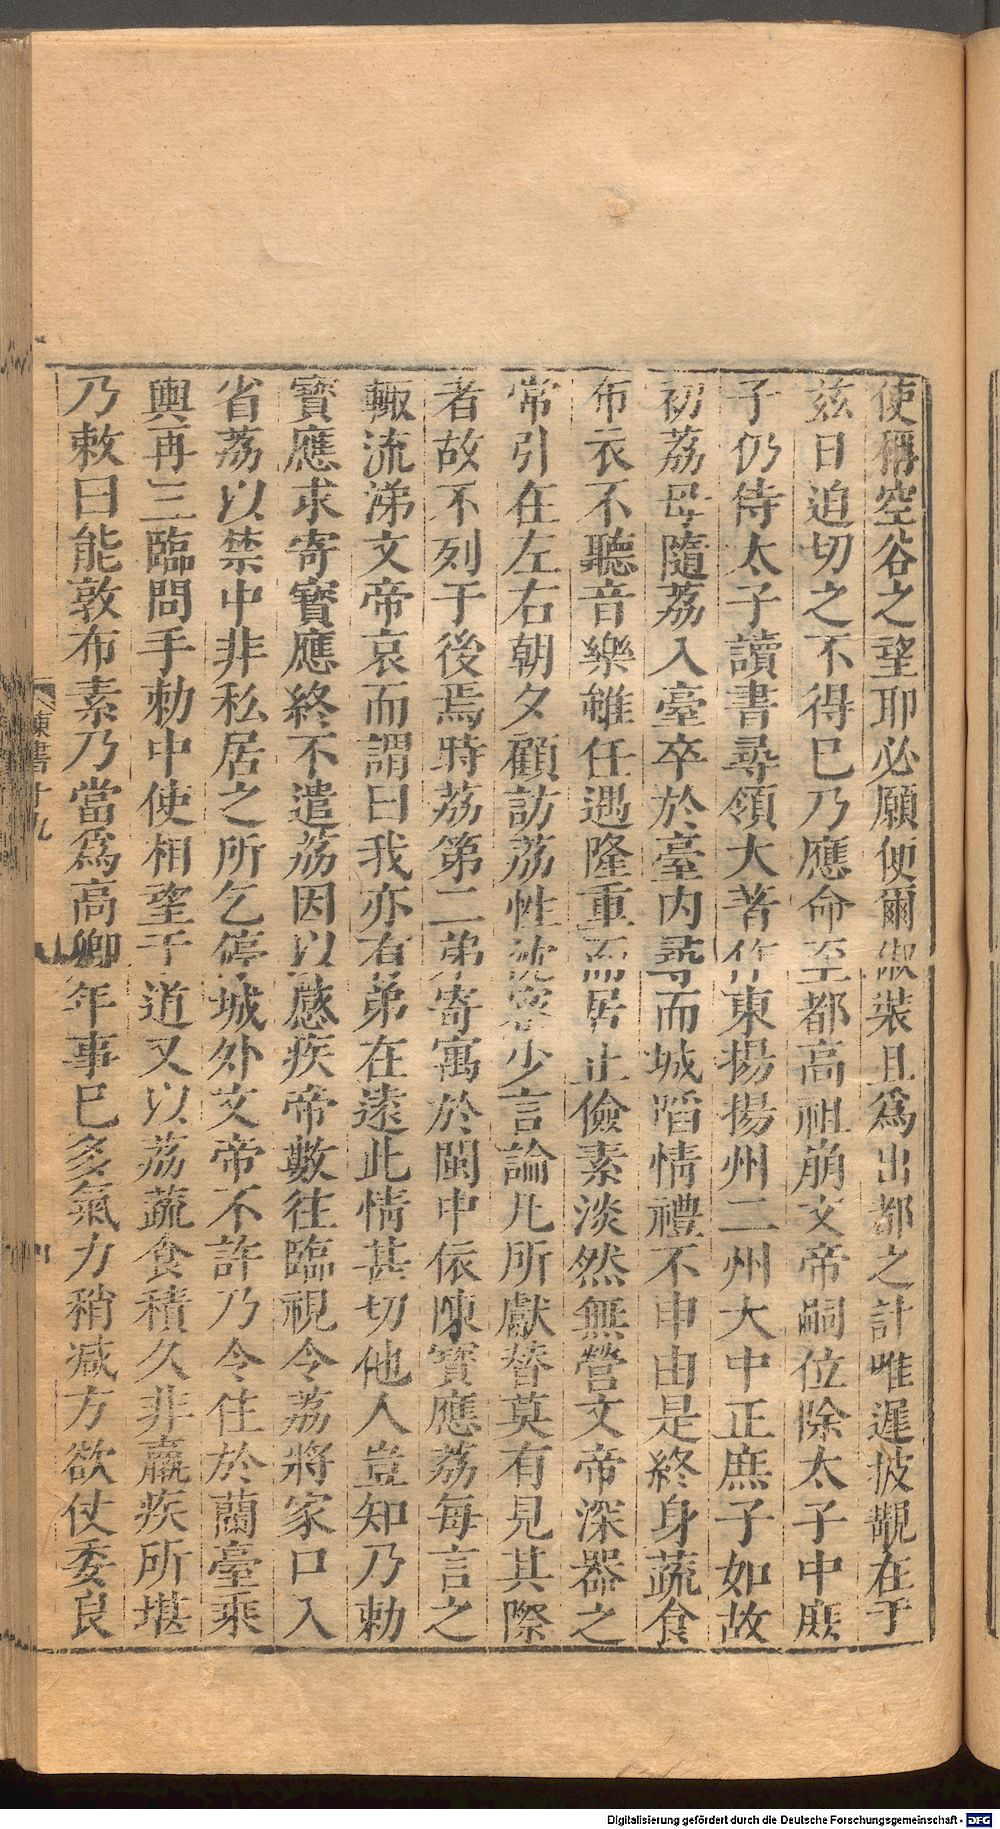 使稱空谷之望耶必願便爾俶裝且爲出都之計唯遲披覯在于
兹日迫切之不得巳乃應命至都高祖崩文帝嗣位除太子中庶
子仍侍太子讀書尋領大著作東揚揚州二州大中正庶子如故
初荔母隨荔入臺卒於臺内尋而城䧟情禮不申由是終身蔬食
布衣不聽音樂雖任遇隆重而居止儉素淡然無營文帝深器之
常引在左右朝夕顧訪荔性沈密少言論凡所獻替莫有見其際
者故不列于後焉時荔第二弟寄寓於閩中依陳寳應荔每言之
輙流涕文帝哀而謂曰我亦有弟在遠此情甚切他人豈知乃勅
寳應求寄寳應終不遣荔因以感疾帝數往臨視令荔將家口入
省荔以禁中非私居之所乞停城外文帝不許乃令住於蘭臺乘
輿再三臨問手勅中使相望于道又以荔蔬食積久非羸疾所堪
乃敕曰能敦布素乃當爲高卿年事巳多氣力稍减方欲仗委良
陳書十九
四
Digitalisierung gefördert durch die Deutsche Forschungsgemeinschaft - DFG